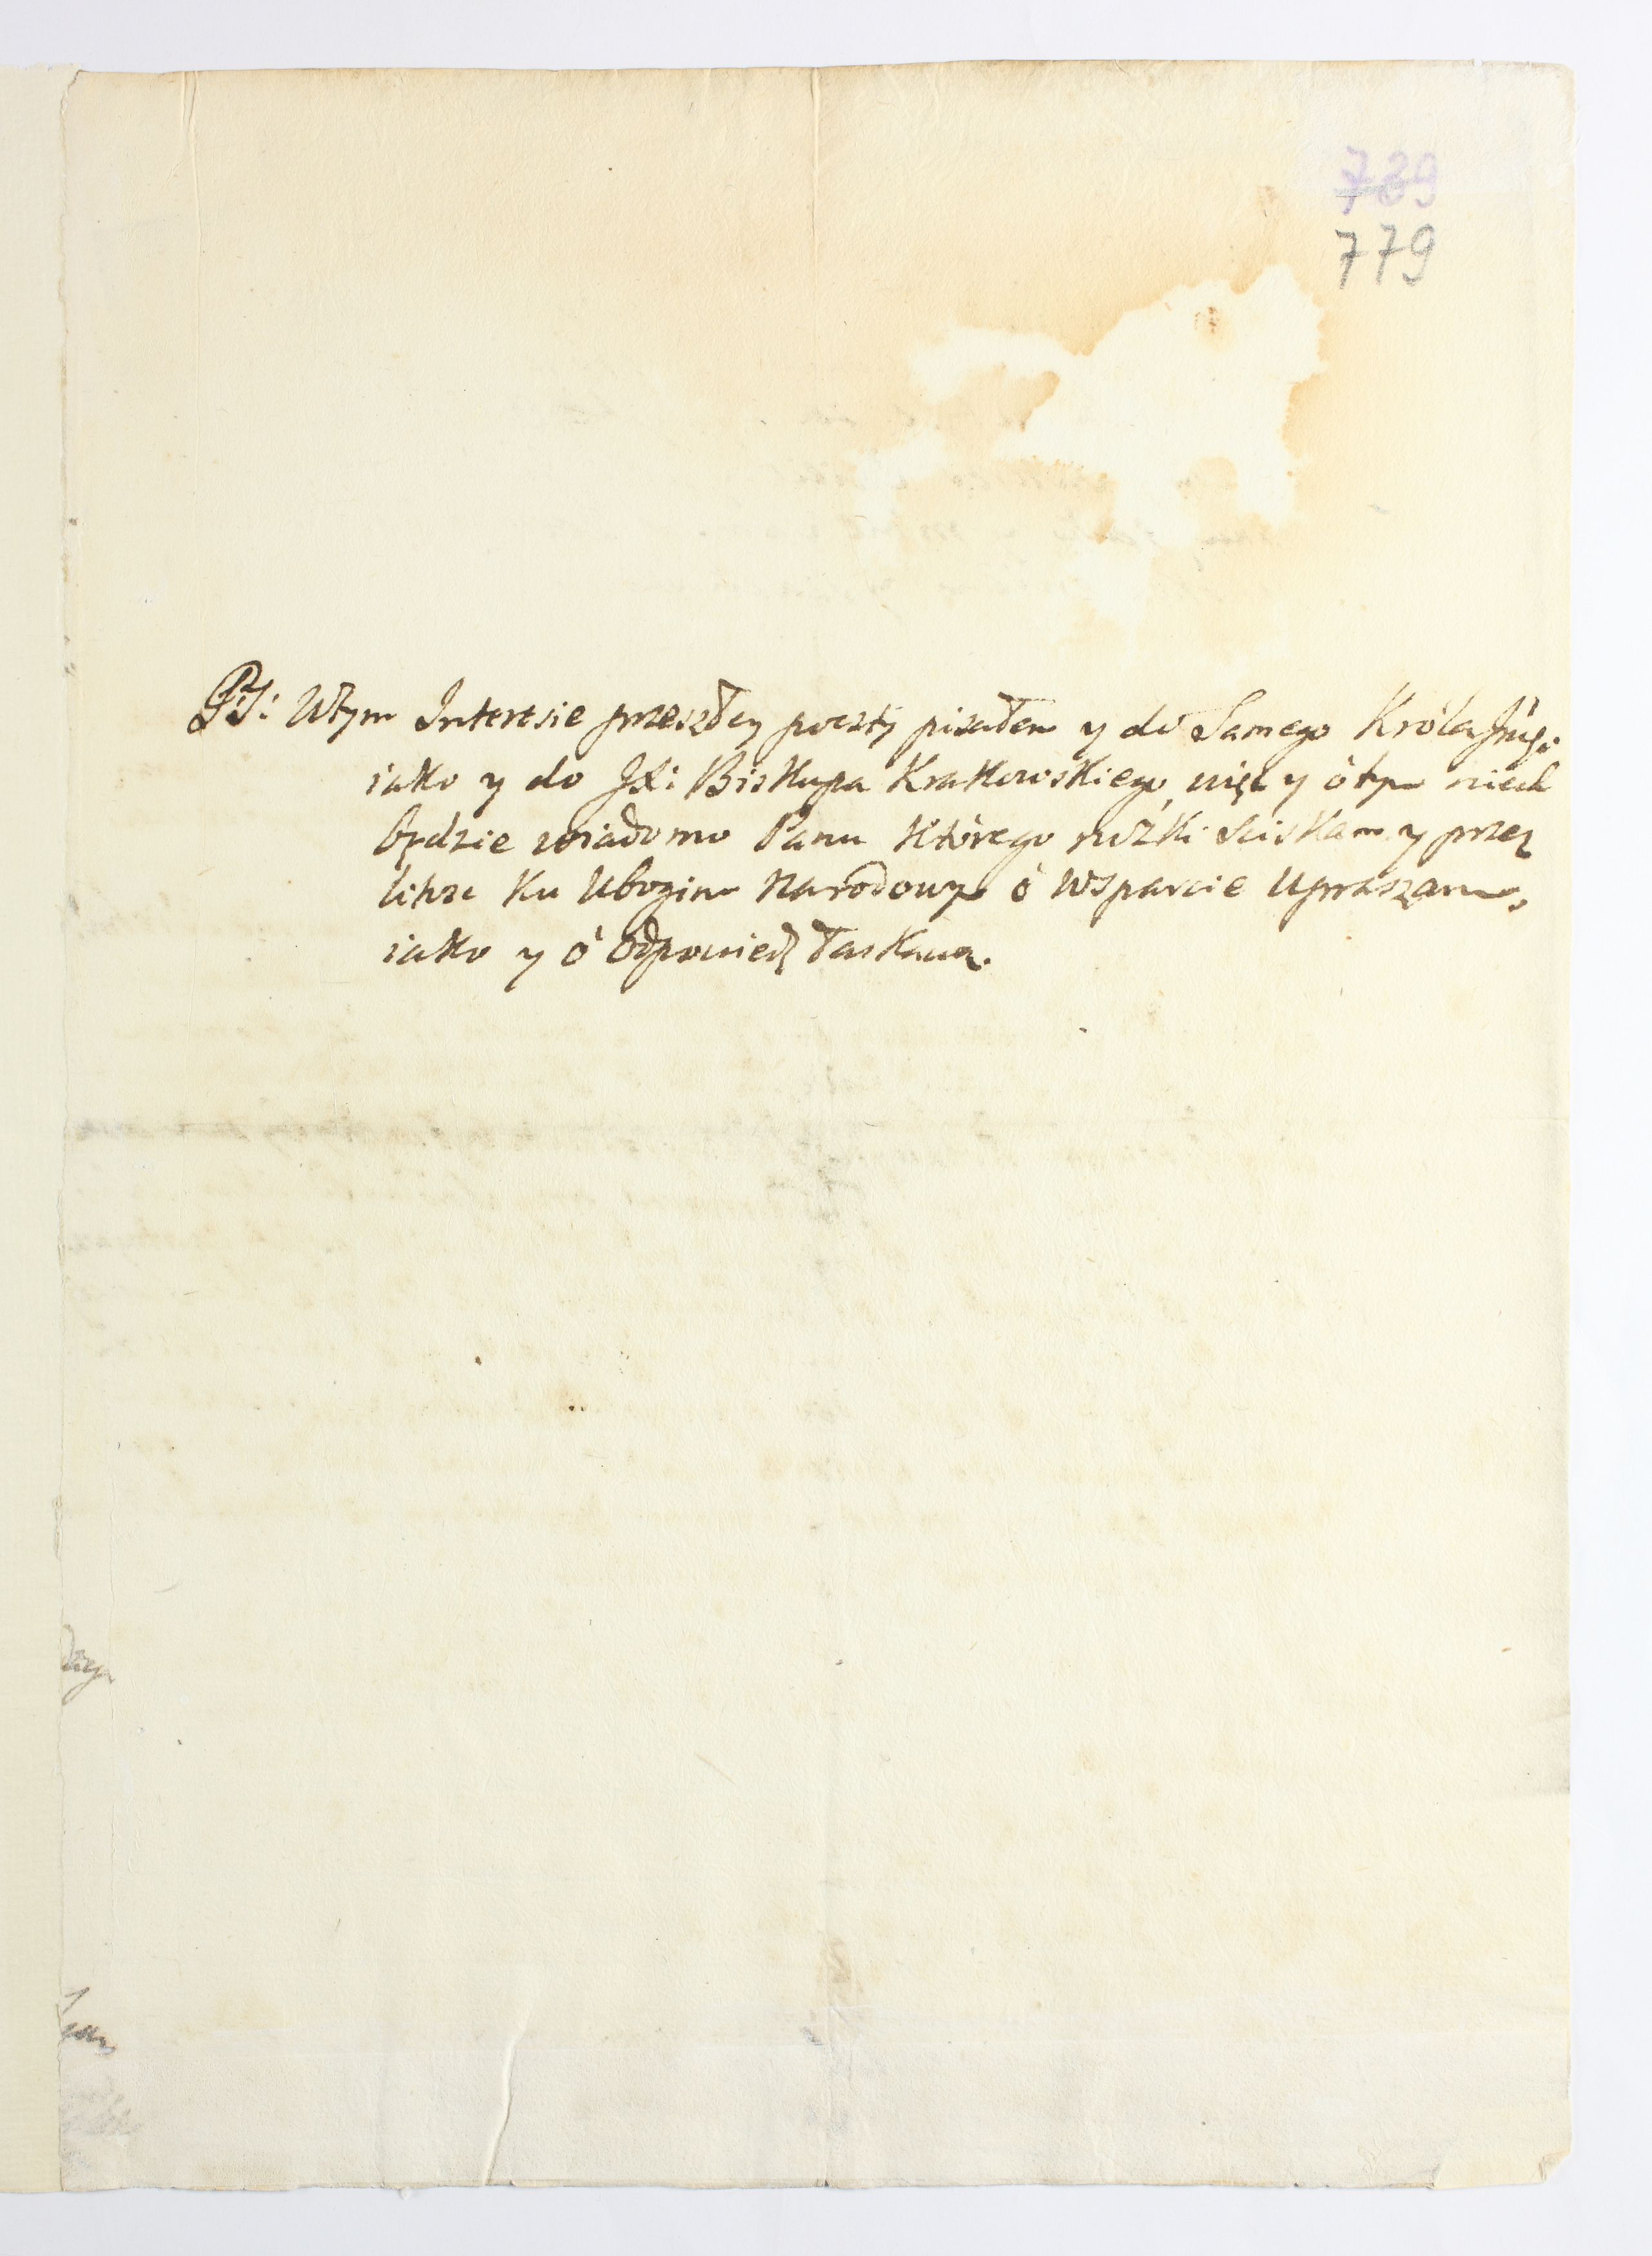 739
779
PS: Wtym Interesie przeszłey poczty pisałem y do Samego Króla Jmsi
iako y do JX: Biskupa Krakowskiego, więc y ótym niech
będzie wiadomo Panu którego nóżki sciskam y przez
litose ku Ubogim Narodowym ó wsparcie Upraszam,
iako y ó odpowiedz łaskawą.